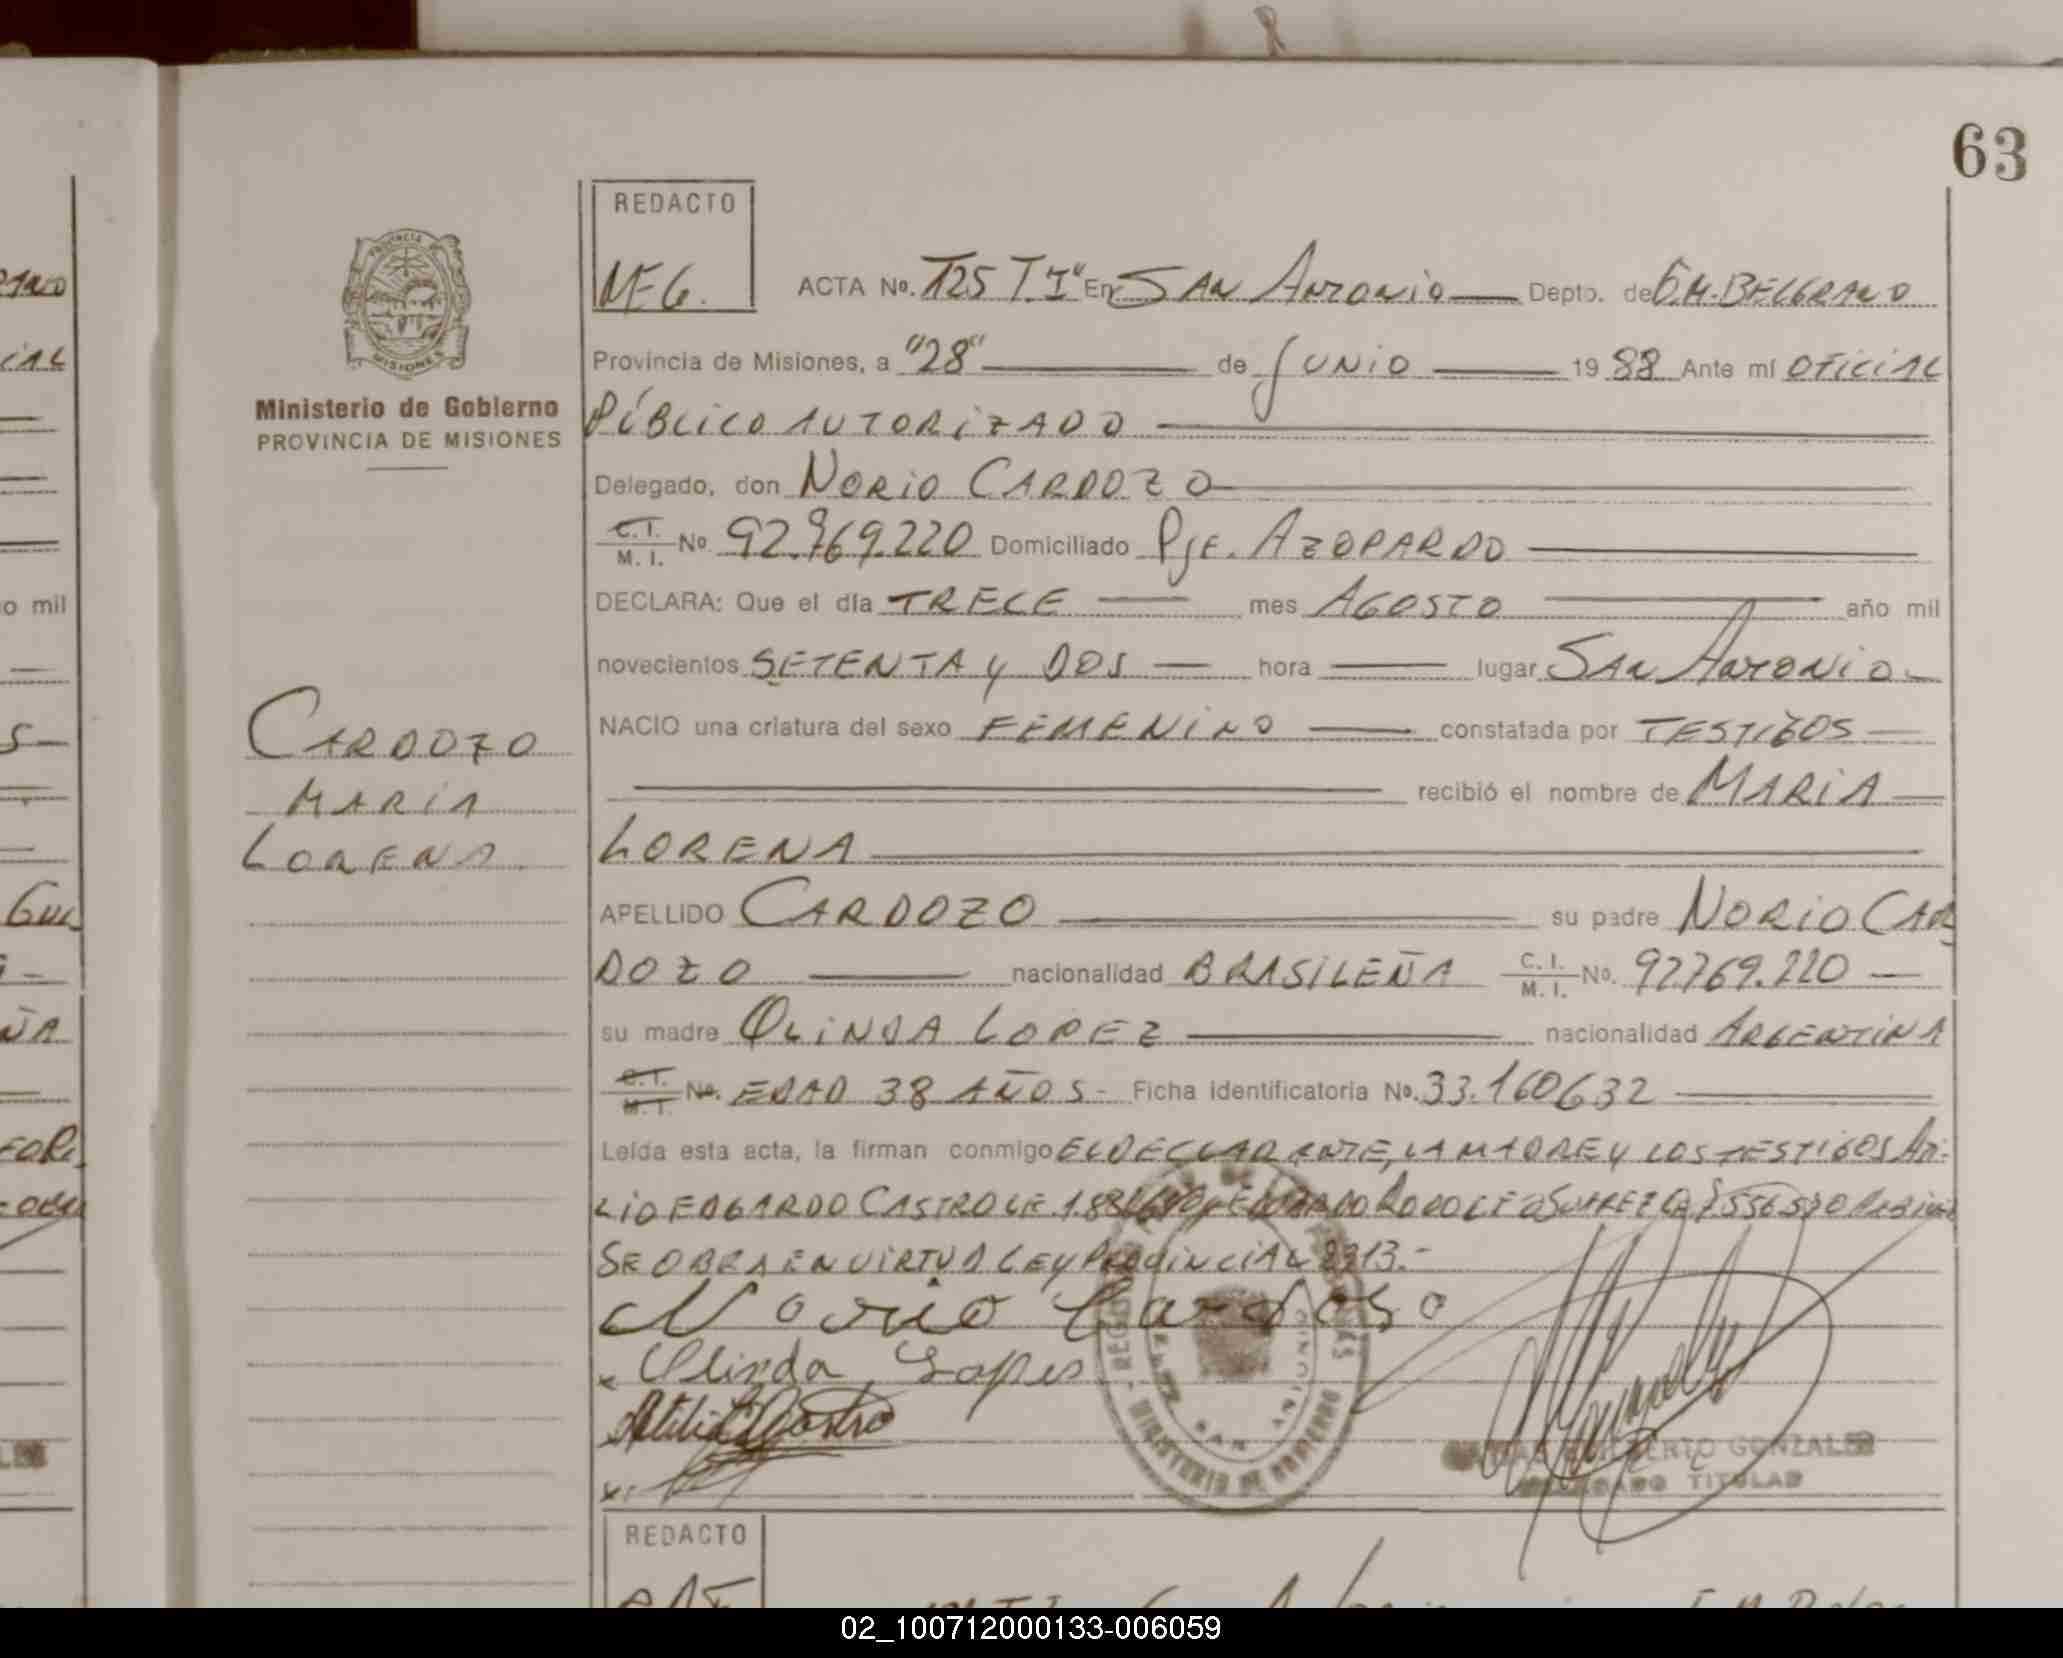 63
REDACTO
MEG.
PROVINCIA
MISIONES
Ministerio de Gobierno
PROVINCIA DE MISIONES
ACTA No. 125 T. I" En SAN ANTONIO Depto. de G.M. BELGRANO
Provincia de Misiones, a "28" de JUNIO 1988 Ante mí OFICIAL
PÚBLICO AUTORIZADO
Delegado, don NORIO CARDOZO
C.I. M.I. No. 92.769.220 Domiciliado PJE. AZOPARDO
DECLARA: Que el día TRECE mes AGOSTO año mil
novecientos SETENTA Y DOS hora lugar SAN ANTONIO
NACIO una criatura del sexo FEMENINO constatada por TESTIGOS
recibió el nombre de MARIA
LORENA
CARDOZO
MARÍA
LORENA
APELLIDO CARDOZO su padre NORIO CAR
DOZO nacionalidad BRASILEÑA C.I. M.I. No. 92.769.220
su madre OLINDA LOPEZ nacionalidad ARGENTINA
C.I. M.I. No. EDAD 38 AÑOS- Ficha identificatoria No. 33.160632
Leída esta acta, la firman conmigo EL DECLARANTE, LA MADRE Y LOS TESTIGOS
EDGARDO CASTRO LE. SUAREZ
SE OBRA EN VIRTUD LEY PROVINCIAL 2313.-
Norio Cardoso
x Olinda Lopes
Atilio Castro
x.
MINISTERIO DE GOBIERNO
SAN ANTONIO
GONZALEZ
TITULAR
REDACTO
o mil
CIAL
ÑA
02_100712000133-006059